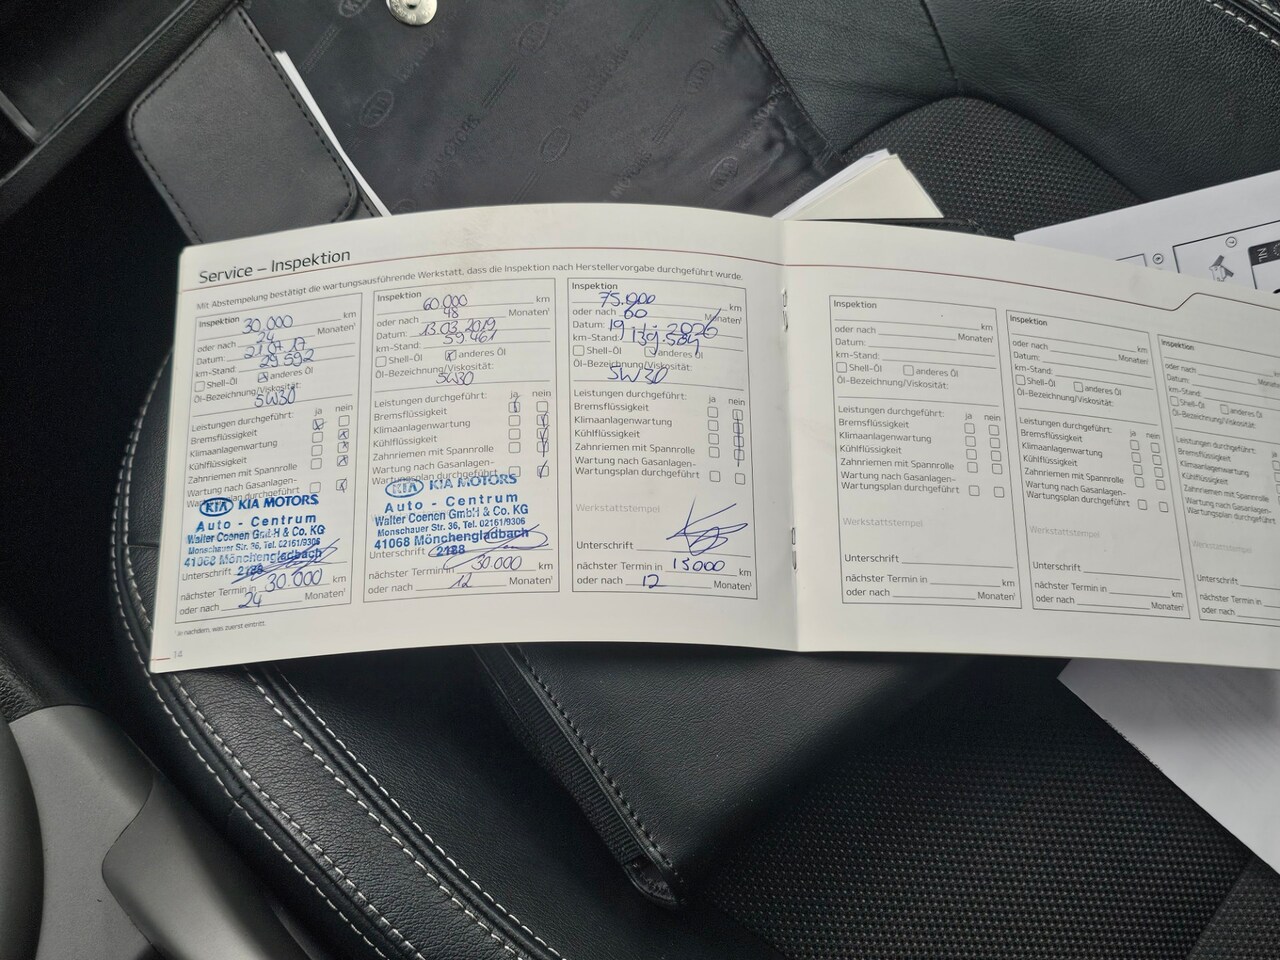 Service – Inspektion
Mit Abstempelung bestätigt die wartungsausführende Werkstatt, dass die Inspektion nach Herstellervorgabe durchgeführt wurde.
Inspektion 30.000 km
oder nach 24 Monaten¹
Datum: 21 07 17
km-Stand: 29.592
Shell-Öl anderes Öl
Öl-Bezeichnung/Viskosität:
5W30
Leistungen durchgeführt: ja nein
Bremsflüssigkeit
Klimaanlagenwartung
Kühlflüssigkeit
Zahnriemen mit Spannrolle
Wartung nach Gasanlagen-
Wartungsplan durchgeführt
KIA KIA MOTORS
Auto - Centrum
Walter Coenen GmbH & Co. KG
Monschauer Str. 36, Tel. 02161/9306
41068 Mönchengladbach
Unterschrift 2188
nächster Termin in 30.000 km
oder nach 24 Monaten¹
¹ Je nachdem, was zuerst eintritt.
14
Inspektion 60.000 km
oder nach 48 Monaten¹
Datum: 13.03.2019
km-Stand: 59 461
Shell-Öl anderes Öl
Öl-Bezeichnung/Viskosität:
5W30
Leistungen durchgeführt: ja nein
Bremsflüssigkeit
Klimaanlagenwartung
Kühlflüssigkeit
Zahnriemen mit Spannrolle
Wartung nach Gasanlagen-
Wartungsplan durchgeführt
KIA KIA MOTORS
Auto - Centrum
Walter Coenen GmbH & Co. KG
Monschauer Str. 36, Tel. 02161/9306
41068 Mönchengladbach
Unterschrift 2188
nächster Termin in 30.000 km
oder nach 12 Monaten¹
Inspektion 75.000 km
oder nach 60 Monaten¹
Datum: 19
km-Stand:
Shell-Öl anderes Öl
Öl-Bezeichnung/Viskosität:
5W30
Leistungen durchgeführt: ja nein
Bremsflüssigkeit
Klimaanlagenwartung
Kühlflüssigkeit
Zahnriemen mit Spannrolle
Wartung nach Gasanlagen-
Wartungsplan durchgeführt
Werkstattstempel
Unterschrift
nächster Termin in 15000 km
oder nach 12 Monaten¹
Inspektion km
oder nach Monaten¹
Datum:
km-Stand:
Shell-Öl anderes Öl
Öl-Bezeichnung/Viskosität:
Leistungen durchgeführt: ja nein
Bremsflüssigkeit
Klimaanlagenwartung
Kühlflüssigkeit
Zahnriemen mit Spannrolle
Wartung nach Gasanlagen-
Wartungsplan durchgeführt
Werkstattstempel
Unterschrift
nächster Termin in km
oder nach Monaten¹
Inspektion km
oder nach Monaten¹
Datum:
km-Stand:
Shell-Öl anderes Öl
Öl-Bezeichnung/Viskosität:
Leistungen durchgeführt: ja nein
Bremsflüssigkeit
Klimaanlagenwartung
Kühlflüssigkeit
Zahnriemen mit Spannrolle
Wartung nach Gasanlagen-
Wartungsplan durchgeführt
Werkstattstempel
Unterschrift
nächster Termin in km
oder nach Monaten¹
Inspektion
oder nach
Datum:
km-Stand:
Shell-Öl anderes Öl
Öl-Bezeichnung/Viskosität:
Leistungen durchgeführt: ja
Bremsflüssigkeit
Klimaanlagenwartung
Kühlflüssigkeit
Zahnriemen mit Spannrolle
Wartung nach Gasanlagen-
Wartungsplan durchgeführt
Werkstattstempel
Unterschrift
nächster Termin in
oder nach
KIA
KIA MOTORS
NL